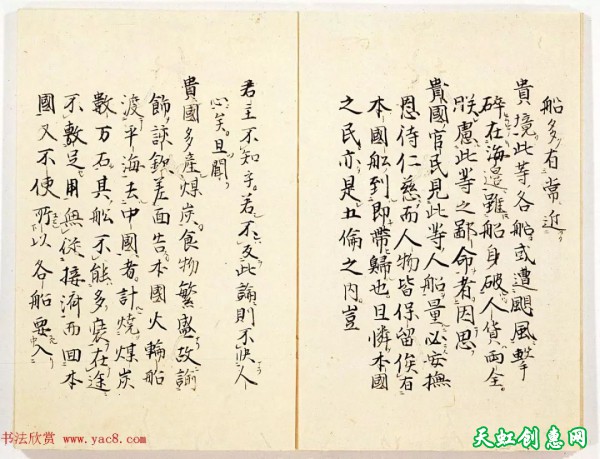 船多有常近
貴境此等各船或遭颶風擊
碎在海邊雖船身破人貨両全
朕慮此等之鄙命者因思
貴國官民見此等人船量必安撫
恩待仁慈而人物皆保留俟有
本國船到即帶歸也且憐本國
之民亦是五倫之内豈
君主不知乎若不及此論則不快人
心矣且聞
貴國多産煤炭食物繁盛故諭
飭該欽差面告本國火輪船
渡平海去中國者計燒煤炭
數万石其船不能多裝在途
不敷足用無從接濟而回本
國又不便所以各船要入
书法欣赏 www.yac8.com
天虹创意网